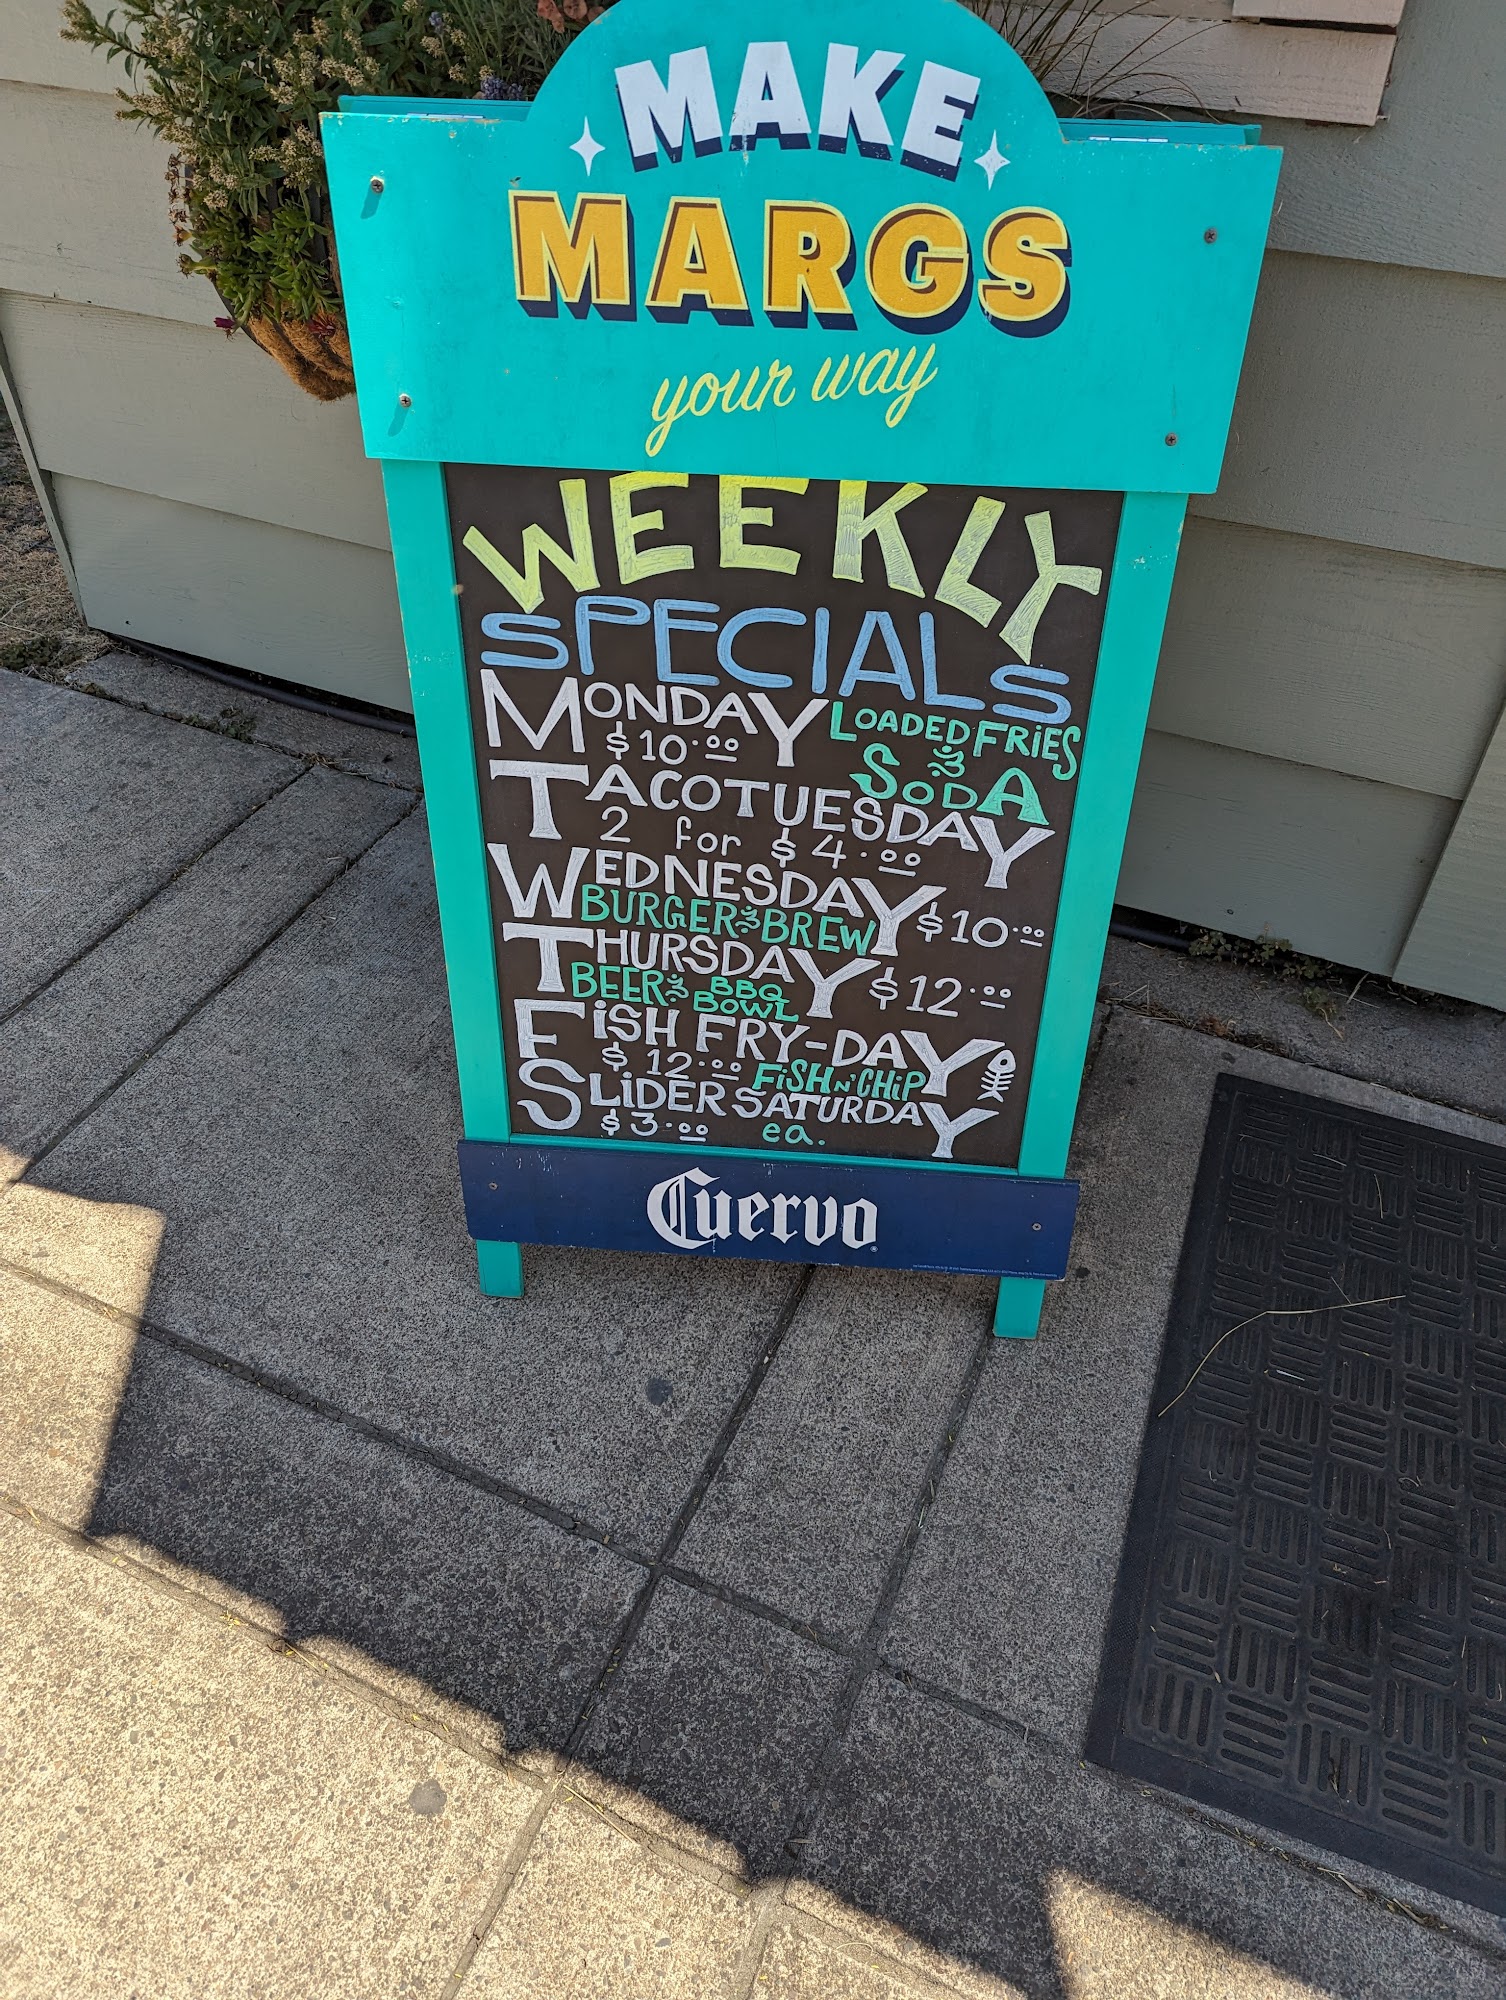 MAKE
MARGS
your way
WEEKLY
SPECIALS
MONDAY LOADED FRiES
$10.00 & SODA
TACO TUESDAY
2 for $4.00
WEDNESDAY $10.00
BURGER & BREW
THURSDAY $12.00
BEER & BBQ BOWL
FiSH FRY-DAY
$12.00 FiSH N' CHiP
SLiDER SATURDAY
$3.00 ea.
Cuervo